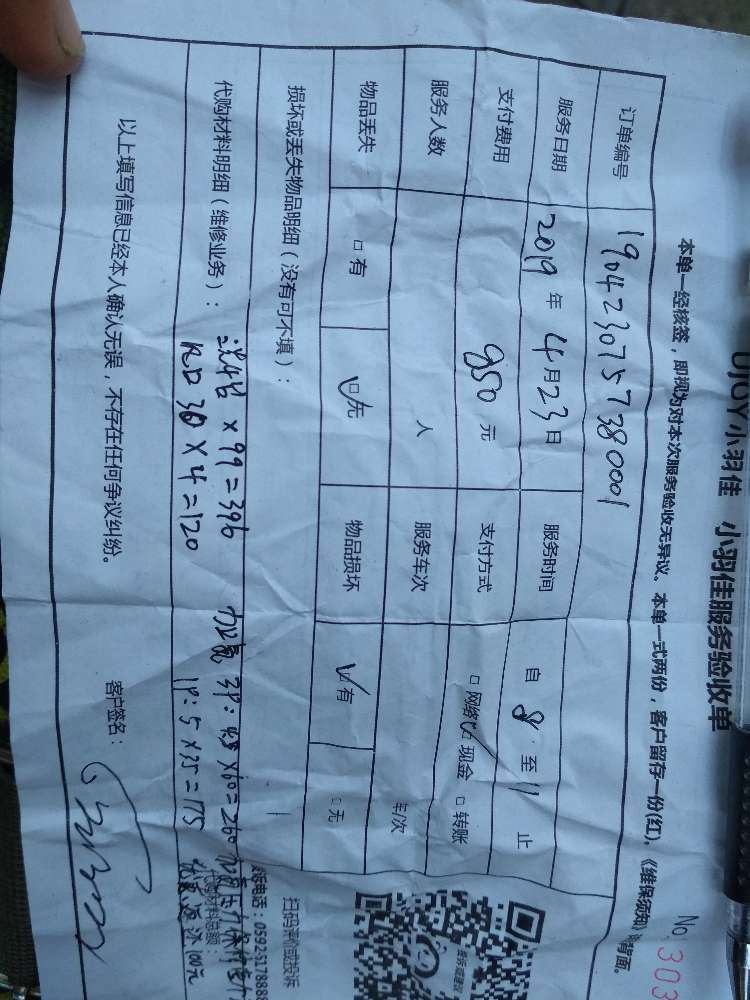 UJOY小羽佳 小羽佳服务验收单
No: 303
本单一经核签，即视为对本次服务验收无异议、本单一式两份，客户留存一份(红)，《维保须知》背面。
订单编号 1904230757380001
服务日期 2019年4月23日 服务时间 自8至11止
支付费用 950元 支付方式 □网络 ☑现金 □转账
服务人数 人 服务车次 车/次
物品丢失 □有 ☑无 物品损坏 ☑有 □无
损坏或丢失物品明细（没有可不填）：
扫码评价或投诉
电话：05925178888
代购材料明细（维修业务）：
×99=396 加氟 3P: ×60=260
30×4=120 1P: 5×35=175
代购材料总额：
100元
以上填写信息已经本人确认无误，不存在任何争议纠纷。 客户签名：